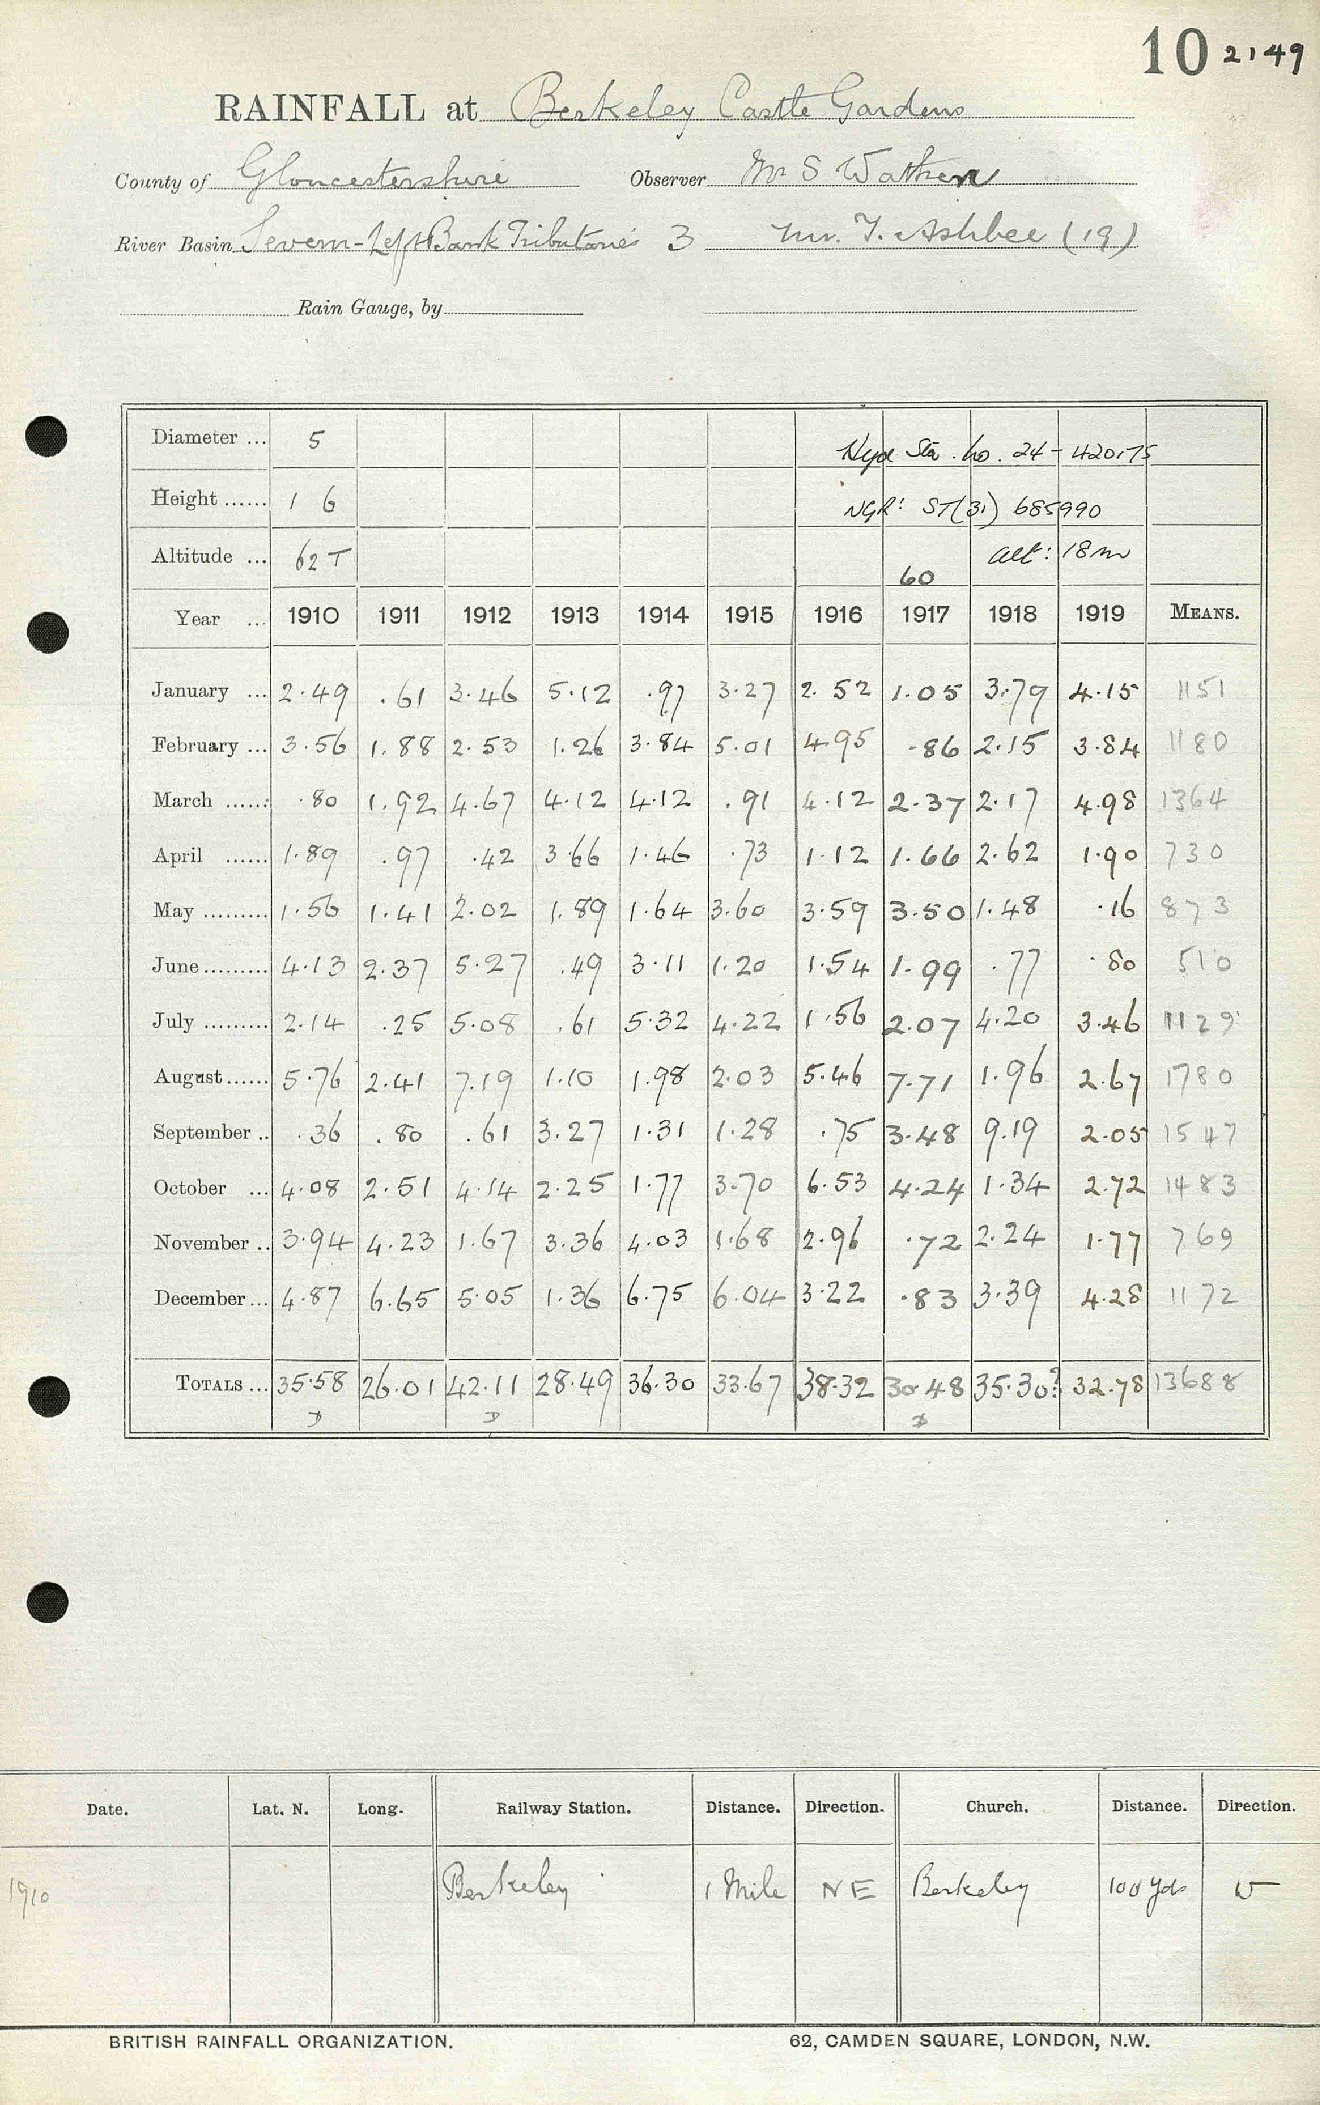 10 2149
RAINFALL at Berkeley Castle Gardens
County of Gloucestershire Observer Mr S Watken
River Basin Severn-Left Bank Tributaries 3 Mr. F. Ashbee (19)
Rain Gauge, by
Diameter ... 5 Hyd Sta. No. 24-420175
Height ...... 1 6 NGR: ST(31) 685990
Altitude ... 62 T alt: 18m
60
Year ... 1910 1911 1912 1913 1914 1915 1916 1917 1918 1919 MEANS.
January ... 2.49 .61 3.46 5.12 .97 3.27 2.52 1.05 3.79 4.15 1151
February ... 3.56 1.88 2.53 1.26 3.84 5.01 4.95 .86 2.15 3.84 1180
March ...... .80 1.92 4.67 4.12 4.12 .91 4.12 2.37 2.17 4.98 1364
April ...... 1.89 .97 .42 3.66 1.46 .73 1.12 1.66 2.62 1.90 730
May ......... 1.56 1.41 2.02 1.89 1.64 3.60 3.59 3.50 1.48 .16 873
June ......... 4.13 2.37 5.27 .49 3.11 1.20 1.54 1.99 .77 .80 510
July ......... 2.14 .25 5.08 .61 5.32 4.22 1.56 2.07 4.20 3.46 1129
August ...... 5.76 2.41 7.19 1.10 1.98 2.03 5.46 7.71 1.96 2.67 1780
September .. .36 .80 .61 3.27 1.31 1.28 .75 3.48 9.19 2.05 1547
October ... 4.08 2.51 4.14 2.25 1.77 3.70 6.53 4.24 1.34 2.72 1483
November .. 3.94 4.23 1.67 3.36 4.03 1.68 2.96 .72 2.24 1.77 769
December ... 4.87 6.65 5.05 1.36 6.75 6.04 3.22 .83 3.39 4.28 1172
TOTALS ... 35.58 26.01 42.11 28.49 36.30 33.67 38.32 30.48 35.30? 32.78 13688
Date. Lat. N. Long. Railway Station. Distance. Direction. Church. Distance. Direction.
1910 Berkeley 1 Mile NE Berkeley 100 yds W
BRITISH RAINFALL ORGANIZATION. 62, CAMDEN SQUARE, LONDON, N.W.